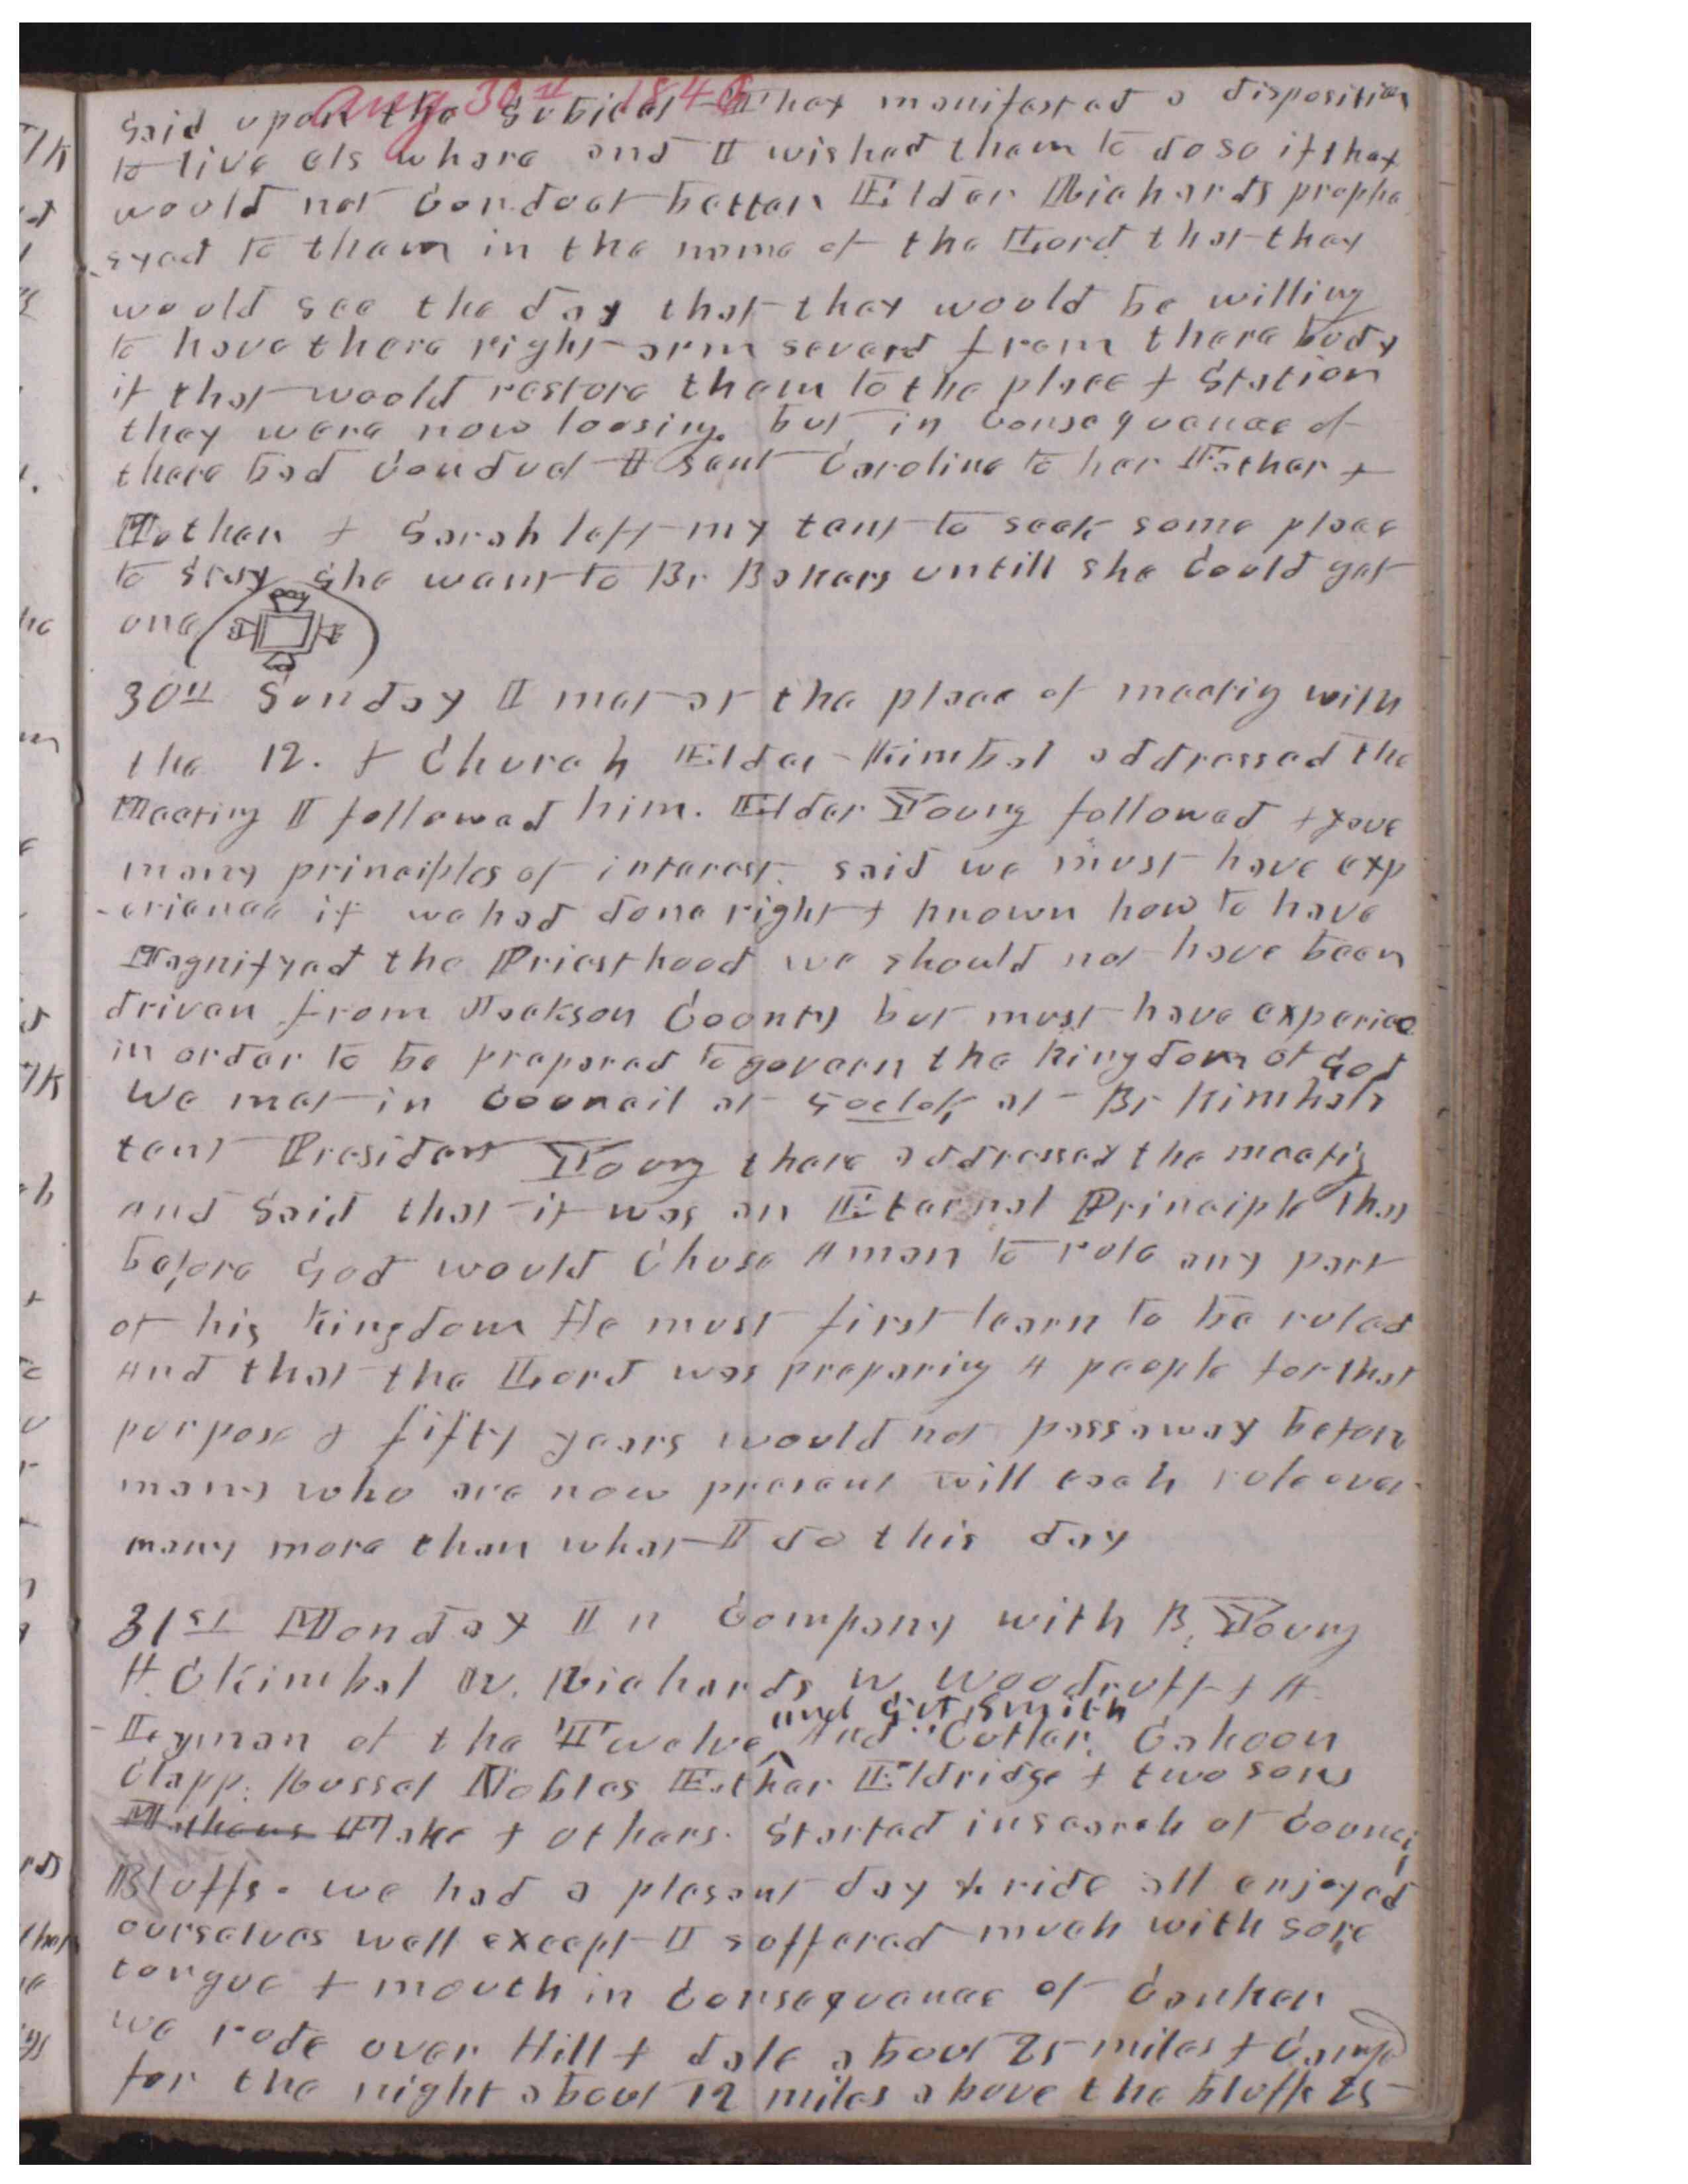 Aug 30th 1846
said upon the Subject They manifested a disposition
to live els whare and I wished them to do so if they
would not Conduct better Elder Richards prophe
-syed to them in the name of the Lord that they
would see the day that they would be willing
to have there right arm severd from there body
if that would restore them to the place & Station
they were now loosing. but in Consequence of
there bad Conduct I sent Caroline to her Father &
Mother & Sarah left my tent to seek some place
to stay she went to Br Bakers untill she Could get
one
30th Sunday I met at the place of meetig with
the 12. & Church Elder Kimbal addressed the
Meeting I followed him. Elder Young followed & gave
many principles of interest. said we must have exp
-erience if we had done right & known how to have
Magnifyed the Priesthood we should not have been
driven from Jackson County but must have experiece
in order to be prepared to govern the Kingdom of God
We met in Council at 5 oclok at Br Kimbals
tent President Young there addressed the meetig
and Said that it was an Eternal Principle that
before God would Chuse A man to rule any part
of his Kingdom He must first learn to be ruled
And that the Lord was preparing A people for that
purpose & fifty years would not pass away before
many who are now present will each rule over
many more than what I do this day
31st Monday In Company with B. Young
H. C Kimbal W. Richards W Woodruff & A
and G A Smith
-Lyman of the Twelve And Cutler. Cahoon
Clapp. Russel Nobles Esther Eldridge & two sons
Mathews Make & others. Started in search of Counci
l
Bluffs. we had a plesant day & ride all enjoyed
ourselves well except I suffered much with sore
tongue & mouth in Consequence of Canker
we rode over Hill & dale about 25 miles & Camp
for the night about 12 miles above the bluffs 25